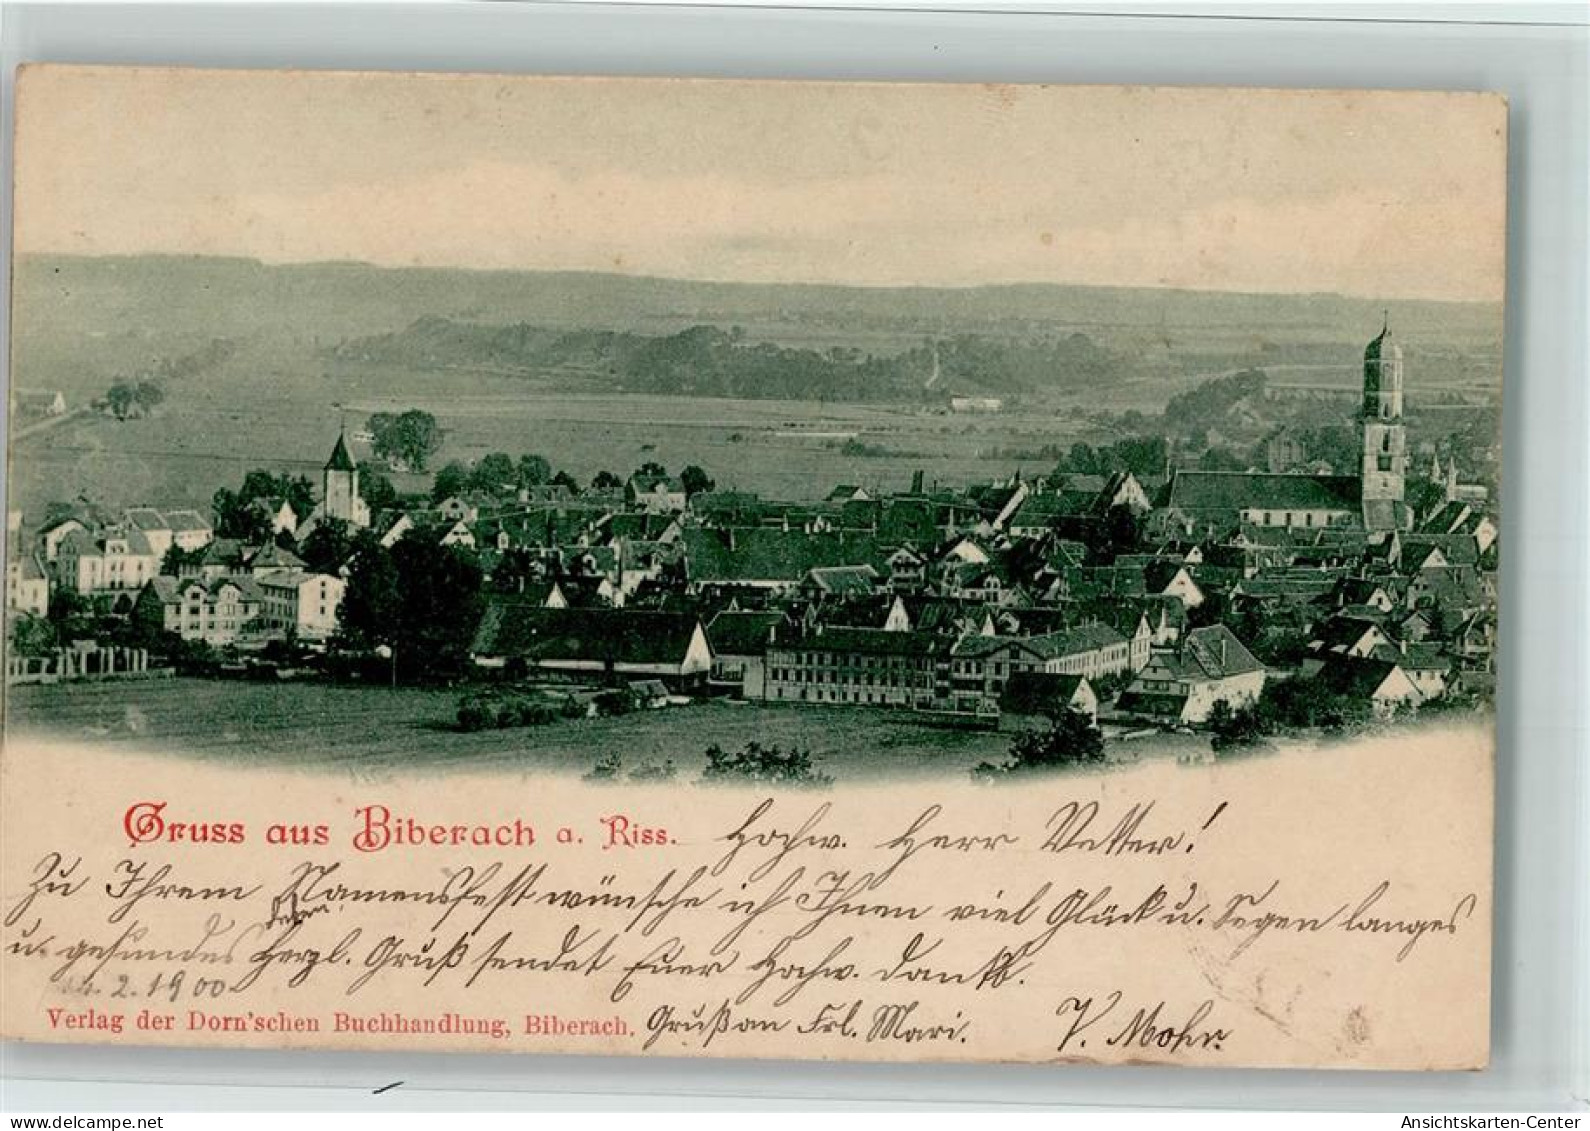 Gruss aus Biberach a. Riss. Hochw. Herr Vetter!
Zu Ihrem Namensfest wünsche ich Ihnen viel Glück u. Segen langes
u. gesundes Leben Herzl. Gruß sendet Euer Hochw. dankb.
2. 1900
Verlag der Dorn'schen Buchhandlung, Biberach. Gruß an Frl. Mari. V. Mohr.
www.delcampe.net
Ansichtskarten-Center